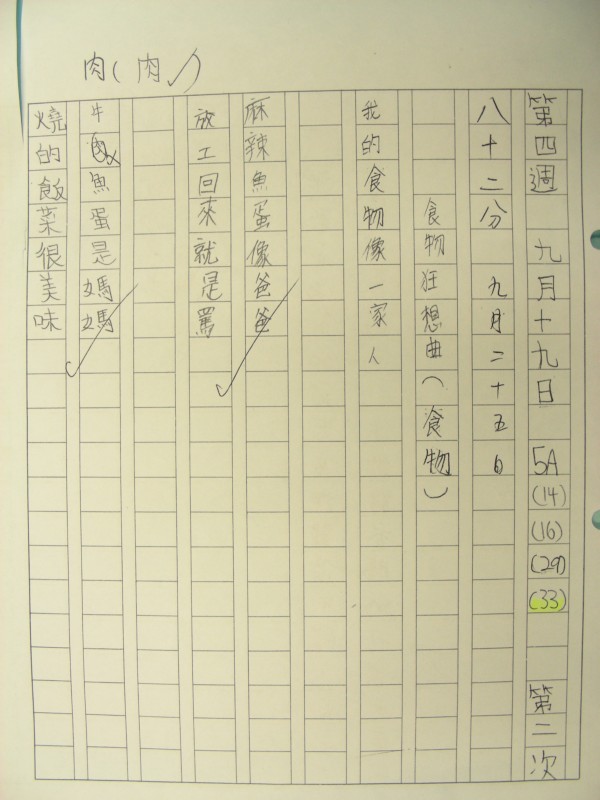 肉（肉✓）
第四週 九月十九日 5A (14) (16) (29) (33) 第二次
八十二分 九月二十五日
食物狂想曲（食物）
我的食物像一家人
麻辣魚蛋像爸爸
放工回來就是罵
牛肉魚蛋是媽媽
燒的飯菜很美味